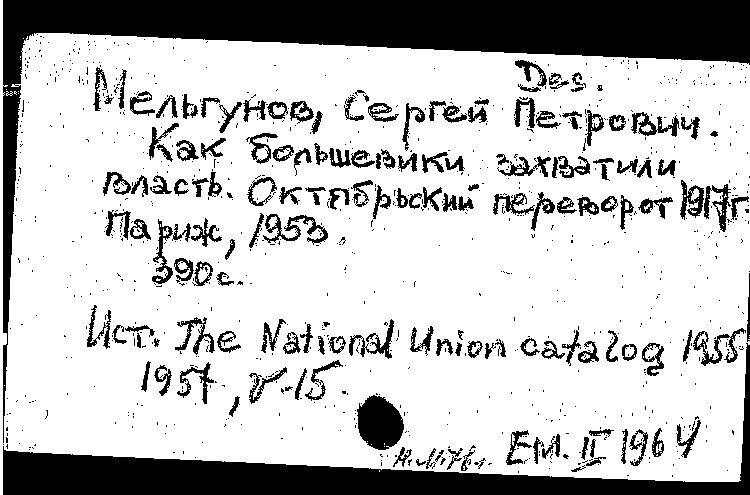 Des.
Мельгунов, Сергей Петрович.
Как большевики захватили
власть. Октябрьский переворот 1917г.
Париж, 1953.
390с.
Ист. The National Union catalog 1955
1957, v-15.
Ем. II 1964